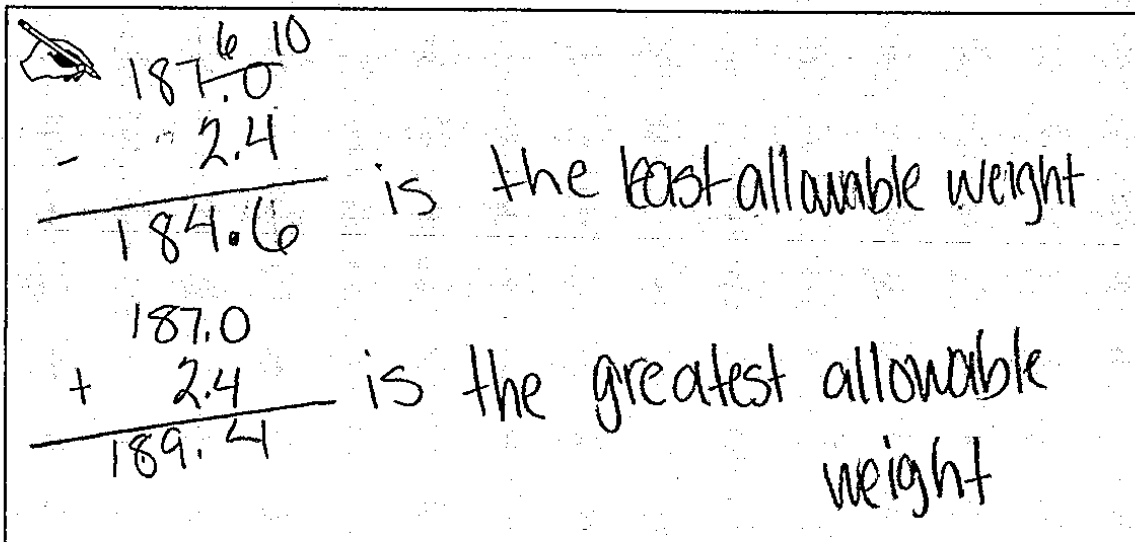 6 10
187.0
- 2.4
184.6 is the least allowable weight
187.0
+ 2.4
189.4 is the greatest allowable
weight